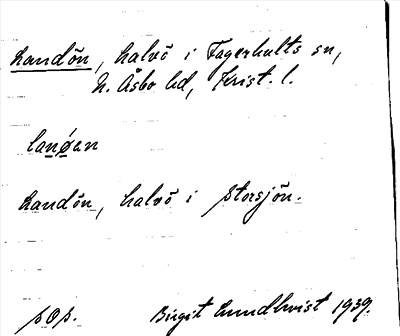 Landön, halvö i Fagerhults sn,
N. Åsbo hd, Krist. l.
lanøen
Landön, halvö i Storsjön.
sOs. Birgit Lundkvist 1939.